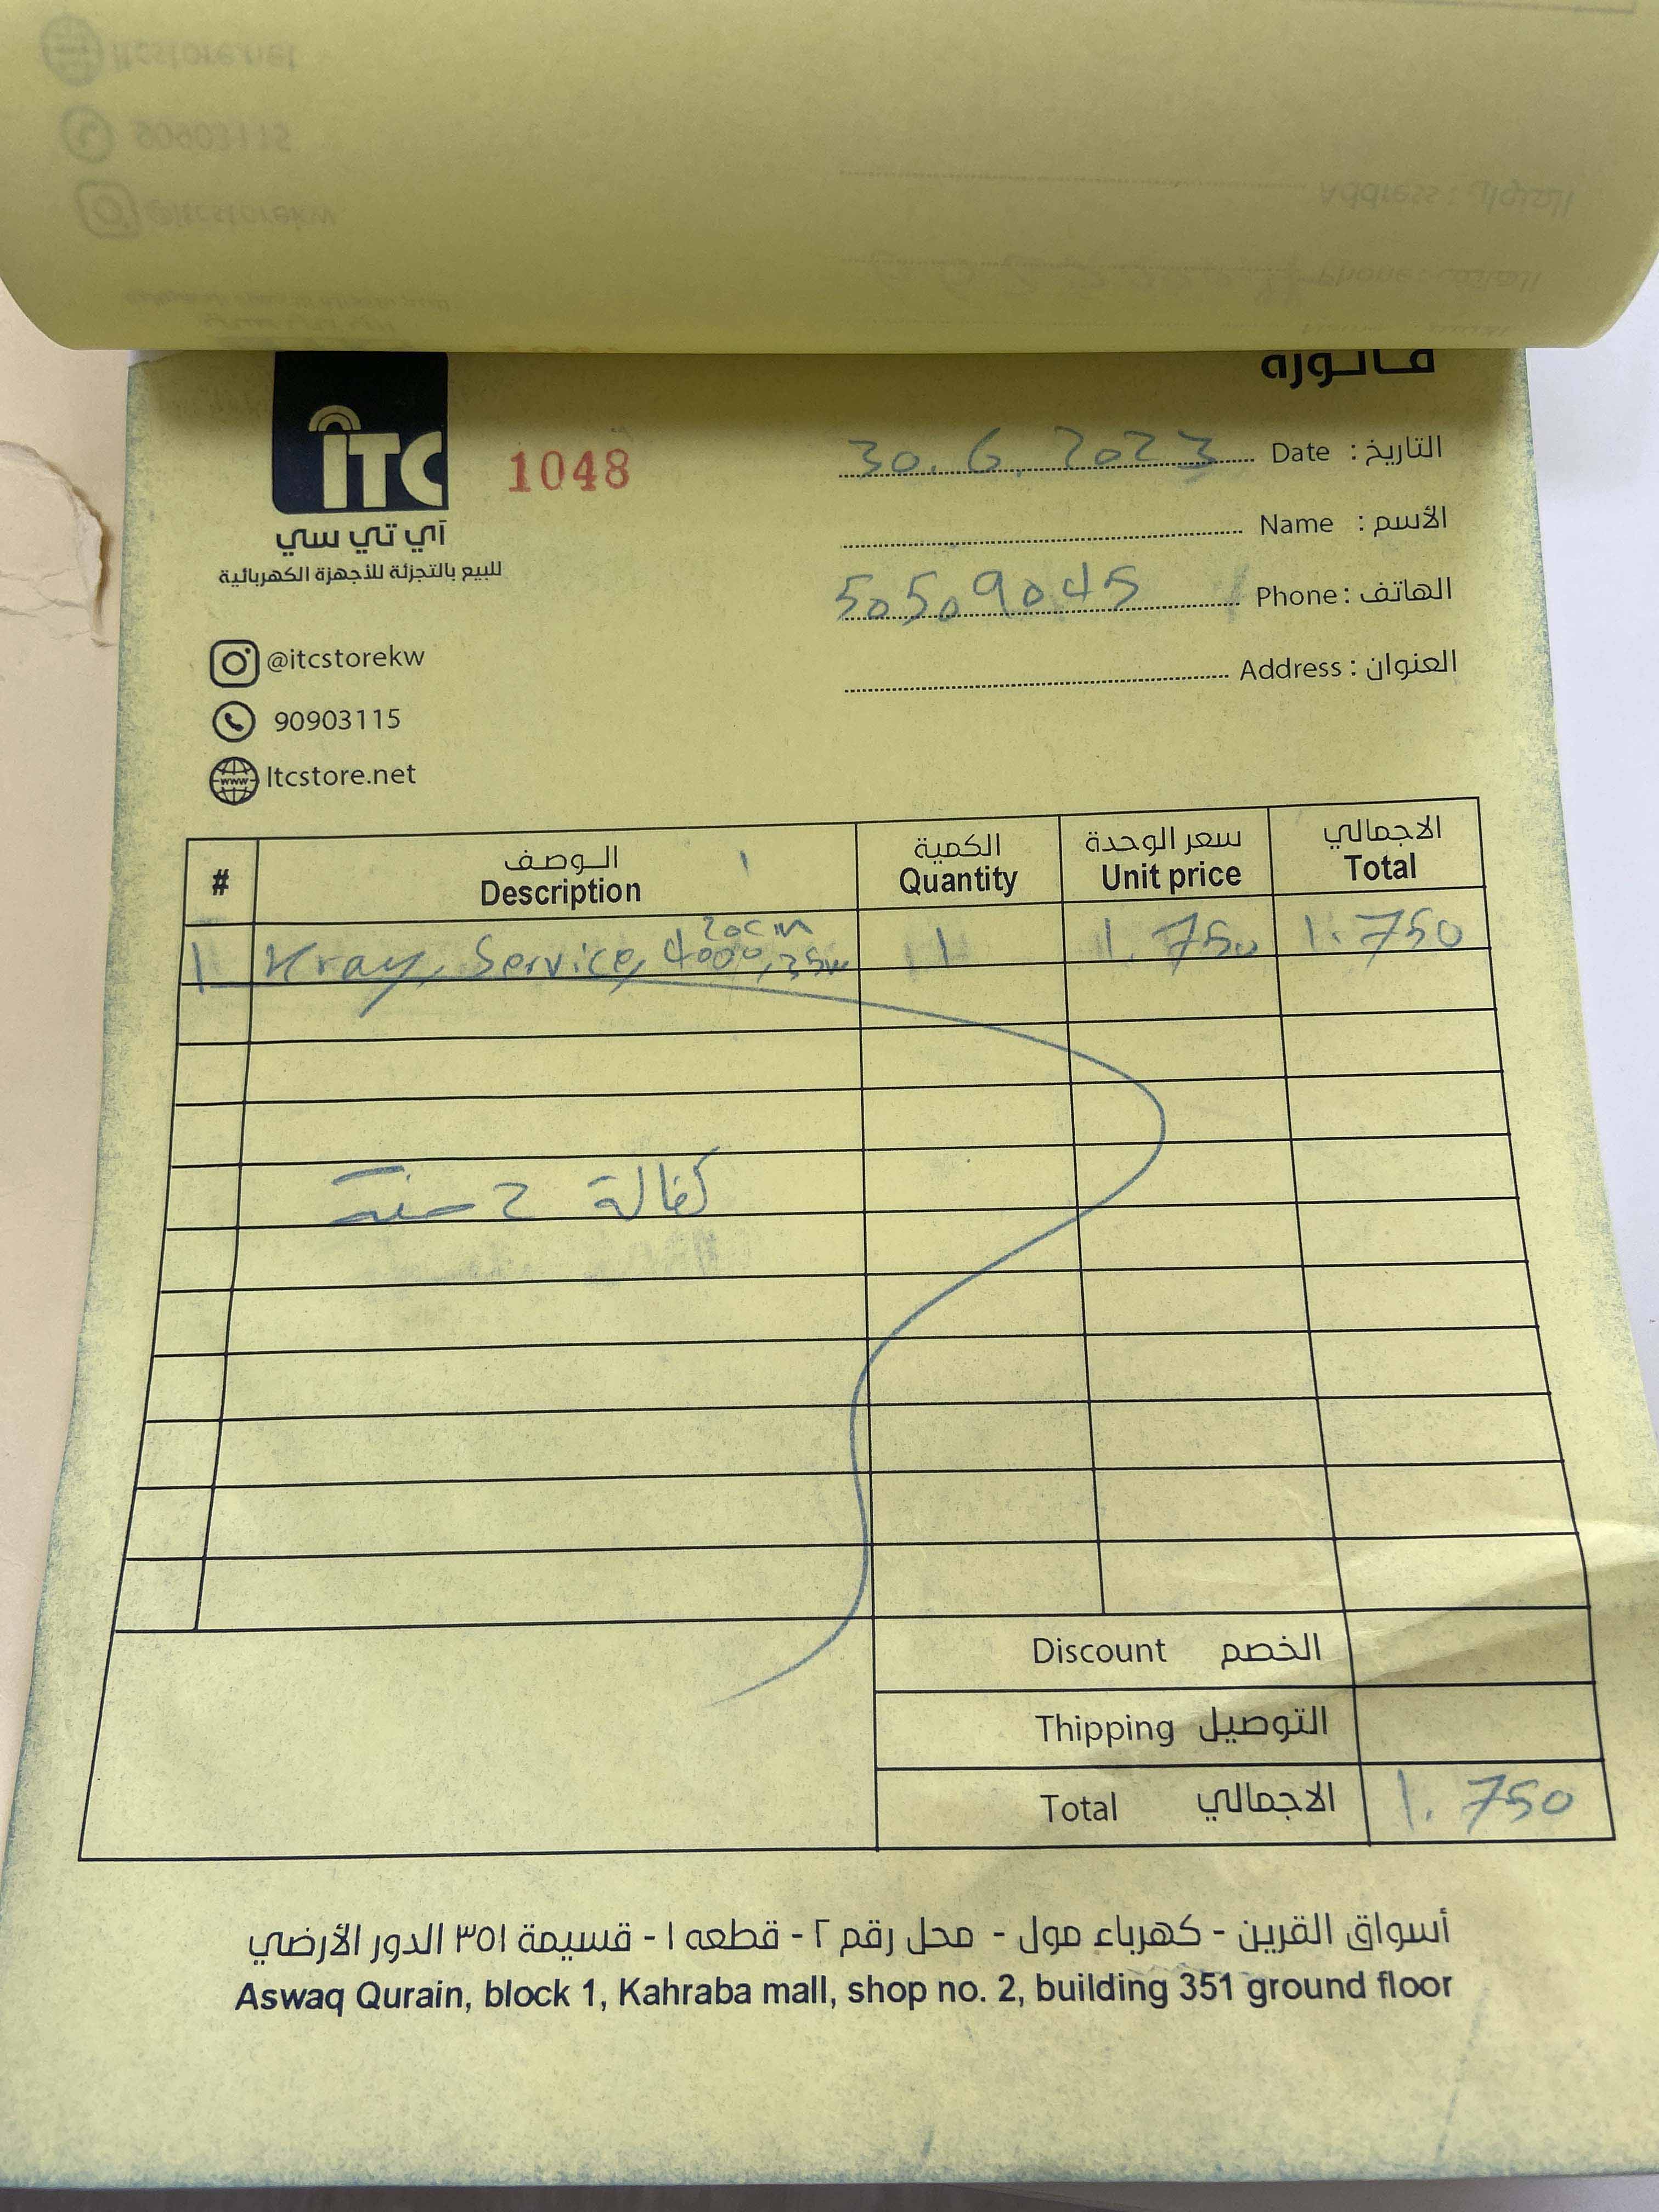 فاتورة
ITC
آي تي سي
للبيع بالتجزئة للأجهزة الكهربائية
1048
التاريخ : Date 30.6.2023
الأسم : Name
الهاتف : Phone 50509045
العنوان : Address
@itcstorekw
90903115
Itcstore.net
# الوصف Description الكمية Quantity سعر الوحدة Unit price الاجمالي Total
20cm
1 Kray, Service, 4000, 25w 1 1.750 1.750
كفالة 2 سنة
Discount الخصم
Thipping التوصيل
Total الاجمالي 1.750
أسواق القرين - كهرباء مول - محل رقم ٢ - قطعه ١ - قسيمة ٣٥١ الدور الأرضي
Aswaq Qurain, block 1, Kahraba mall, shop no. 2, building 351 ground floor